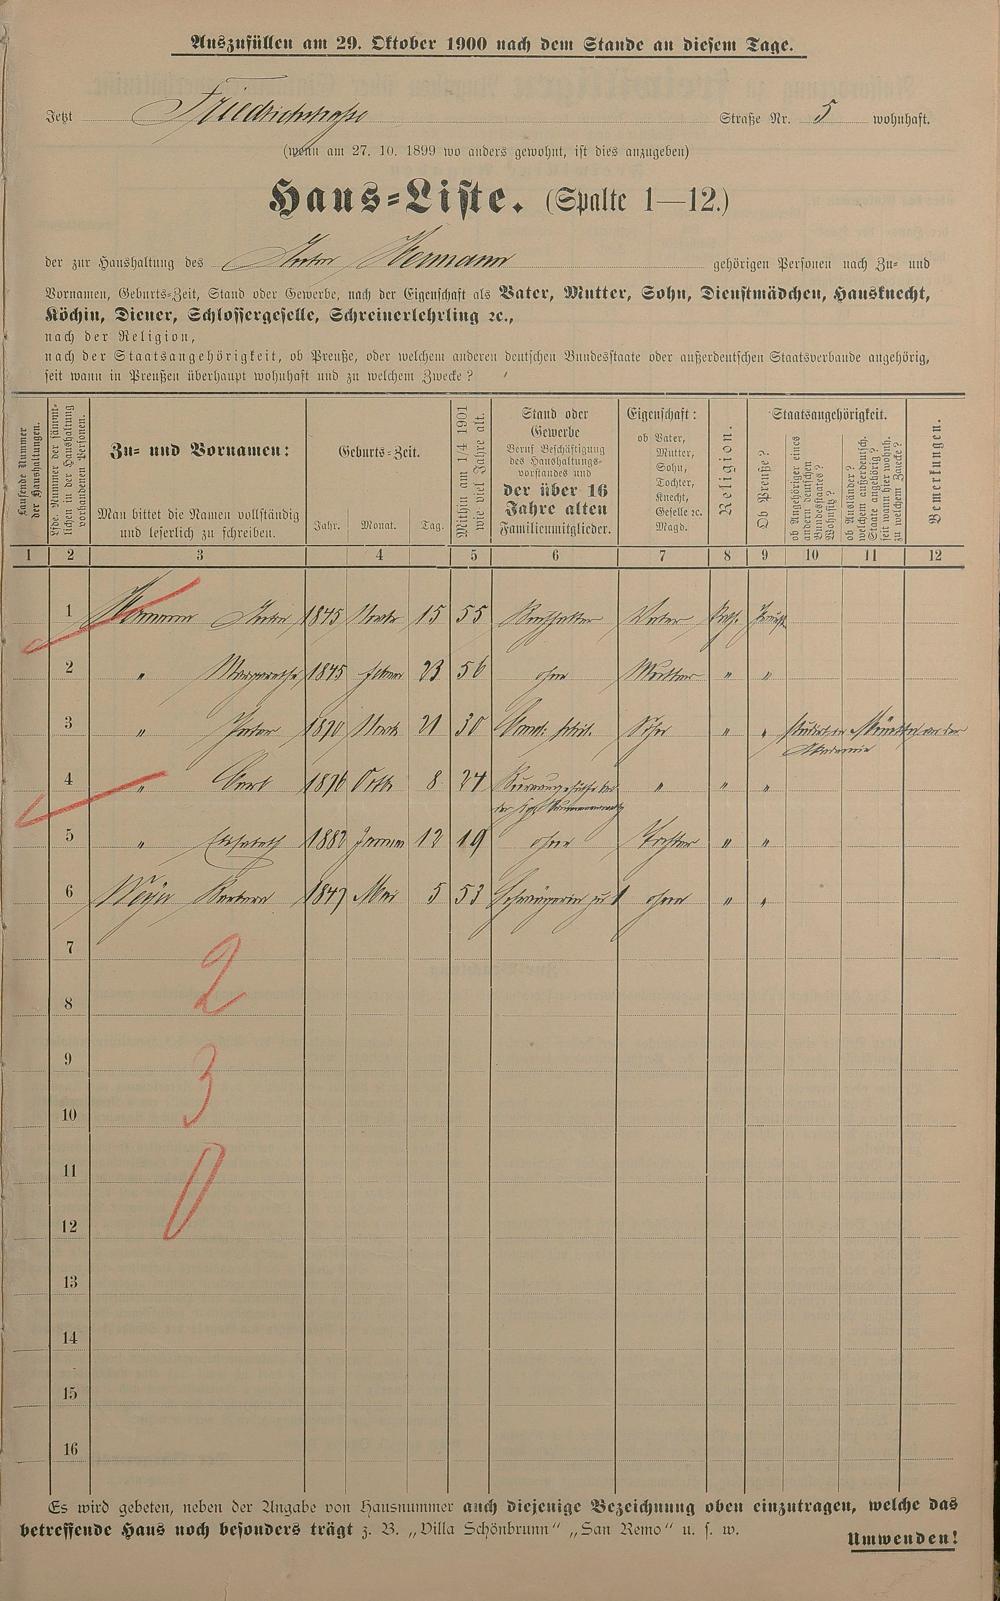 Auszufüllen am 29. Oktober 1900 nach dem Stande an diesem Tage.
Jetzt Friedrichstraße Straße Nr. 5 wohnhaft.
(wenn am 27. 10. 1899 wo anders gewohnt, ist dies anzugeben)
Haus-Liste. (Spalte 1—12.)
der zur Haushaltung des Anton Hermann gehörigen Personen nach Zu- und
Vornamen, Geburts-Zeit, Stand oder Gewerbe, nach der Eigenschaft als Vater, Mutter, Sohn, Dienstmädchen, Hausknecht,
Köchin, Diener, Schlossergeselle, Schreinerlehrling ꝛc.,
nach der Religion,
nach der Staatsangehörigkeit, ob Preuße, oder welchem anderen deutschen Bundesstaate oder außerdeutschen Staatsverbande angehörig,
seit wann in Preußen überhaupt wohnhaft und zu welchem Zwecke?
Laufende Nummer
der Haushaltungen.
Lfde. Nummer der sämmt-
lichen in der Haushaltung
vorhandenen Personen.
Zu- und Vornamen:
Man bittet die Namen vollständig
und leserlich zu schreiben.
Geburts-Zeit.
Jahr. Monat. Tag.
Mithin am 1/4 1901
wie viel Jahre alt.
Stand oder
Gewerbe
Beruf Beschäftigung
des Haushaltungs-
vorstandes und
der über 16
Jahre alten
Familienmitglieder.
Eigenschaft:
ob Vater,
Mutter,
Sohn,
Tochter,
Knecht,
Geselle ꝛc.
Magd.
Religion.
Staatsangehörigkeit.
Ob Preuße?
ob Angehöriger eines
andern deutschen
Bundesstaates?
Wohnsitz?
ob Ausländer?
welchem außerdeutsch.
Staate angehörig?
seit wann hier wohnh.
zu welchem Zwecke?
Bemerkungen.
1 2 3 4 5 6 7 8 9 10 11 12
1 Hermann Anton 1845 15 55 Vater Kath. Preuße
2 " Margaretha 1845 Februar 23 56 ohne Mutter " "
3 " 1870 21 30 Sohn " " studiert in an der
Akademie
4 " Carl 1876 Octb 8 24 " " "
5 " Elisabeth 1882 Januar 12 19 ohne Tochter " "
6 Barbara 1847 Mai 5 53 Schwägerin zu 1 ohne " "
7
2
8
9
3
10
11
0
12
13
14
15
16
Es wird gebeten, neben der Angabe von Hausnummer auch diejenige Bezeichnung oben einzutragen, welche das
betreffende Haus noch besonders trägt z. B. „Villa Schönbrunn" „San Remo" u. s. w.
Umwenden!